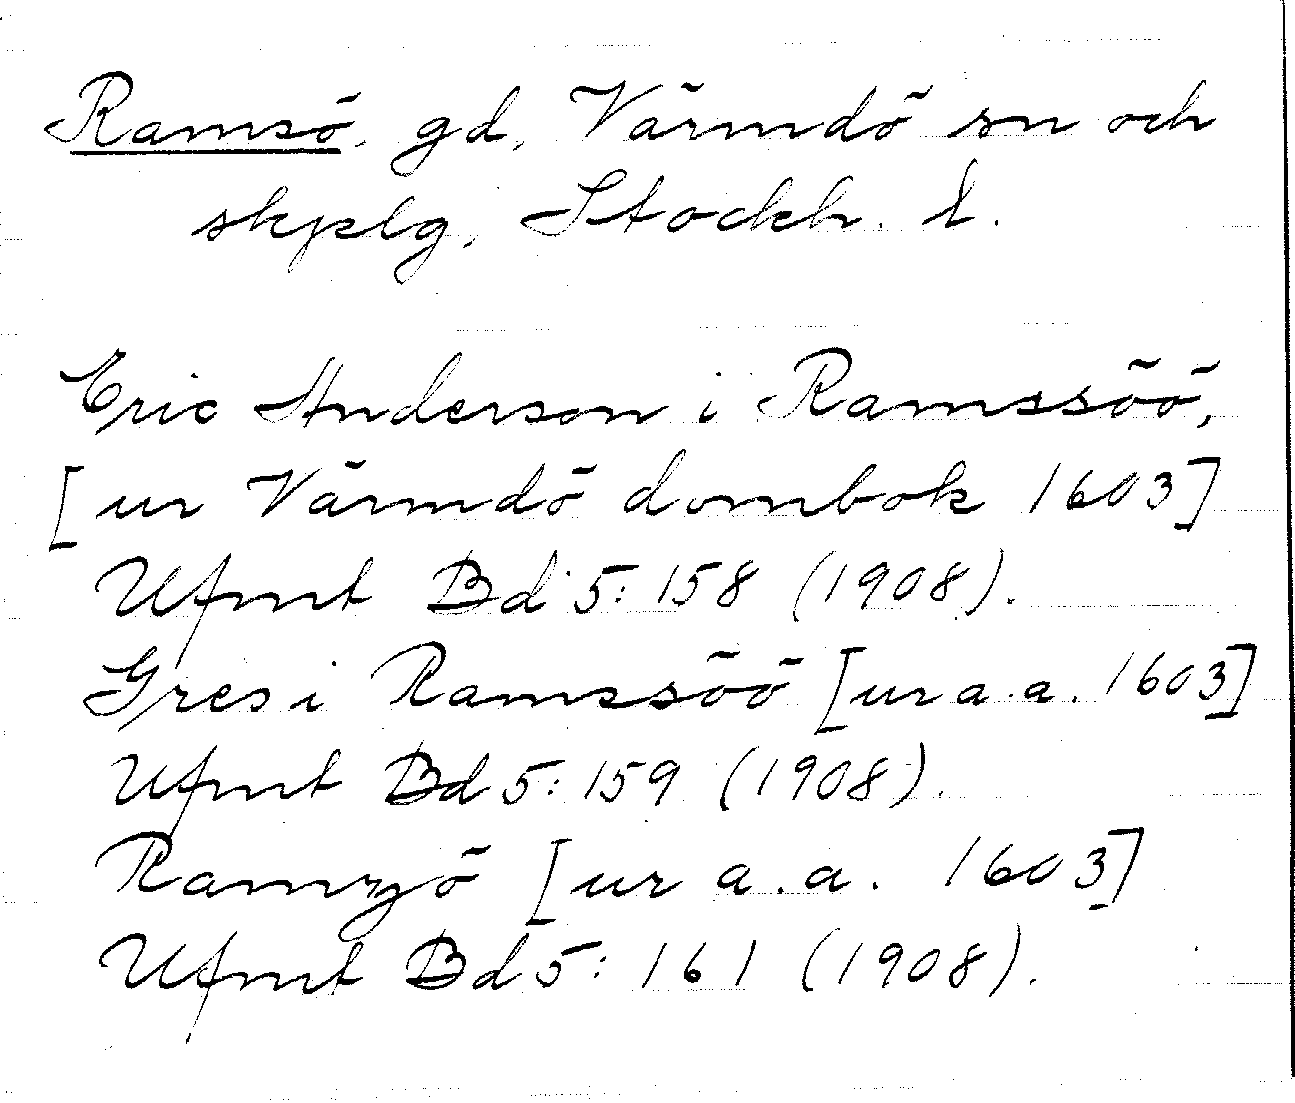 Ramsö, gd, Värmdö sn och
skplg, Stockh. l.
Eric Anderson i Ramssöö,
[ur Värmdö dombok 1603]
Ufmt Bd 5: 158 (1908).
Gres i Ramssöö [ur a.a. 1603]
Ufmt Bd 5: 159 (1908).
Ramzjö [ur a.a. 1603]
Ufmt Bd 5: 161 (1908).